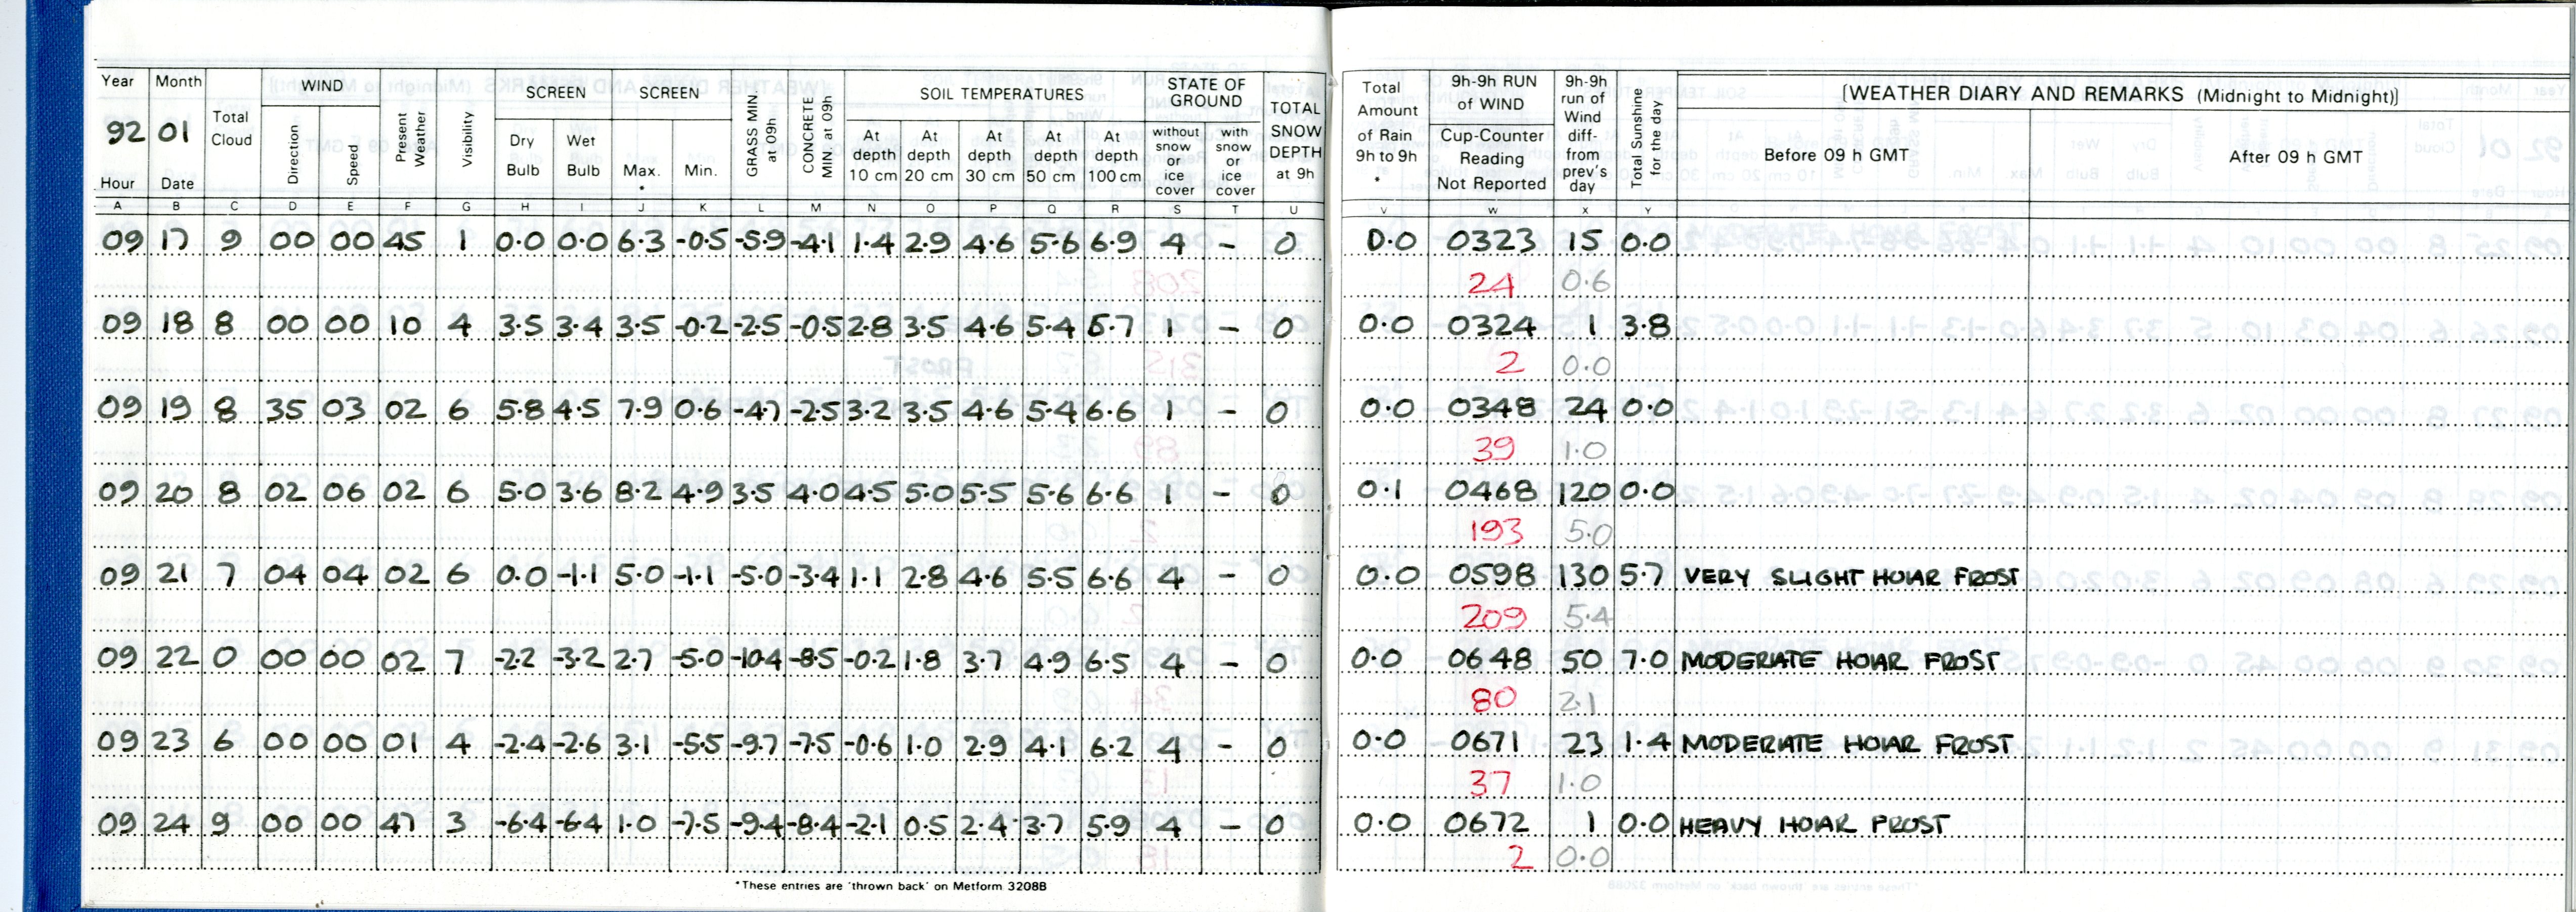 Year Month Total Cloud WIND Present Weather Visibility SCREEN SCREEN GRASS MIN. at 09h CONCRETE MIN. at 09h SOIL TEMPERATURES STATE OF GROUND TOTAL SNOW DEPTH at 9h Total Amount of Rain 9h to 9h * 9h-9h RUN of WIND Cup-Counter Reading Not Reported 9h-9h run of Wind diff- from prev's day Total Sunshine for the day [WEATHER DIARY AND REMARKS (Midnight to Midnight)]
92 01 Direction Speed Dry Bulb Wet Bulb Max. * Min. At depth 10 cm At depth 20 cm At depth 30 cm At depth 50 cm At depth 100 cm without snow or ice cover with snow or ice cover Before 09 h GMT After 09 h GMT
Hour Date
A B C D E F G H I J K L M N O P Q R S T U V W X Y
09 17 9 00 00 45 1 0.0 0.0 6.3 -0.5 -5.9 -4.1 1.4 2.9 4.6 5.6 6.9 4 - 0 0.0 0323 15 0.0
24 0.6
09 18 8 00 00 10 4 3.5 3.4 3.5 -0.2 -2.5 -0.5 2.8 3.5 4.6 5.4 6.7 1 - 0 0.0 0324 1 3.8
2 0.0
09 19 8 35 03 02 6 5.8 4.5 7.9 0.6 -4.7 -2.5 3.2 3.5 4.6 5.4 6.6 1 - 0 0.0 0348 24 0.0
39 1.0
09 20 8 02 06 02 6 5.0 3.6 8.2 4.9 3.5 4.0 4.5 5.0 5.5 5.6 6.6 1 - 0 0.1 0468 120 0.0
193 5.0
09 21 7 04 04 02 6 0.0 -1.1 5.0 -1.1 -5.0 -3.4 1.1 2.8 4.6 5.5 6.6 4 - 0 0.0 0598 130 5.7 VERY SLIGHT HOAR FROST
209 5.4
09 22 0 00 00 02 7 -2.2 -3.2 2.7 -5.0 -10.4 -8.5 -0.2 1.8 3.7 4.9 6.5 4 - 0 0.0 0648 50 7.0 MODERATE HOAR FROST
80 2.1
09 23 6 00 00 01 4 -2.4 -2.6 3.1 -5.5 -9.7 -7.5 -0.6 1.0 2.9 4.1 6.2 4 - 0 0.0 0671 23 1.4 MODERATE HOAR FROST
37 1.0
09 24 9 00 00 47 3 -6.4 -6.4 1.0 -7.5 -9.4 -8.4 -2.1 0.5 2.4 3.7 5.9 4 - 0 0.0 0672 1 0.0 HEAVY HOAR FROST
2 0.0
*These entries are 'thrown back' on Metform 3208B